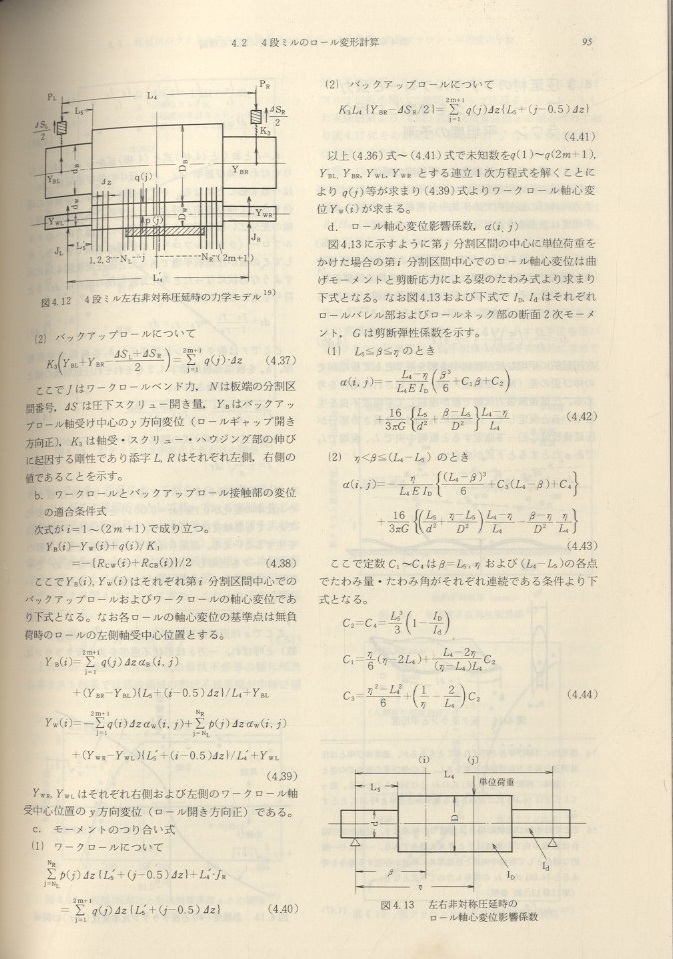 4.2 4段ミルのロール変形計算 95
図4.12 4段ミル左右非対称圧延時の力学モデル¹⁹⁾
(2) バックアップロールについて
K₃(Y_BL+Y_BR−(ΔS_L+ΔS_R)/2)=Σ_{j=1}^{2m+1} q(j)·Δz (4.37)
ここでJはワークロールベンド力, Nは板端の分割区
間番号, ΔSは圧下スクリュー開き量, Y_Bはバックアッ
プロール軸受け中心のy方向変位(ロールギャップ開き
方向正), K₃は軸受・スクリュー・ハウジング部の伸び
に起因する剛性であり添字L, Rはそれぞれ左側, 右側の
値であることを示す。
b. ワークロールとバックアップロール接触部の変位
の適合条件式
次式がi=1~(2m+1)で成り立つ。
Y_B(i)−Y_W(i)+q(i)/K₁
=−{R_CW(i)+R_CB(i)}/2 (4.38)
ここでY_B(i), Y_W(i)はそれぞれ第i分割区間中心での
バックアップロールおよびワークロールの軸心変位であ
り下式となる。なお各ロールの軸心変位の基準点は無負
荷時のロールの左側軸受中心位置とする。
Y_B(i)=Σ_{j=1}^{2m+1} q(j)Δz α_B(i, j)
+(Y_BR−Y_BL){L₅+(i−0.5)Δz}/L₄+Y_BL
Y_W(i)=−Σ_{j=1}^{2m+1} q(i)Δz α_W(i, j)+Σ_{j=N_L}^{N_R} p(j)Δz α_W(i, j)
+(Y_WR−Y_WL){L₅′+(i−0.5)Δz}/L₄′+Y_WL
(4.39)
Y_WR, Y_WLはそれぞれ右側および左側のワークロール軸
受中心位置のy方向変位(ロール開き方向正)である。
c. モーメントのつり合い式
(1) ワークロールについて
Σ_{j=N_L}^{N_R} p(j)Δz{L₅′+(j−0.5)Δz}+L₄′·J_R
=Σ_{j=1}^{2m+1} q(j)Δz{L₅′+(j−0.5)Δz} (4.40)
(2) バックアップロールについて
K₃L₄{Y_BR−ΔS_R/2}=Σ_{j=1}^{2m+1} q(j)Δz{L₅+(j−0.5)Δz}
(4.41)
以上(4.36)式~(4.41)式で未知数をq(1)~q(2m+1),
Y_BL, Y_BR, Y_WL, Y_WRとする連立1次方程式を解くことに
よりq(j)等が求まり(4.39)式よりワークロール軸心変
位Y_W(i)が求まる。
d. ロール軸心変位影響係数, α(i, j)
図4.13に示すように第j分割区間の中心に単位荷重を
かけた場合の第i分割区間中心でのロール軸心変位は曲
げモーメントと剪断応力による梁のたわみ式より求まり
下式となる。なお図4.13および下式でI_D, I_dはそれぞれ
ロールバレル部およびロールネック部の断面2次モーメ
ント, Gは剪断弾性係数を示す。
(1) L₅≦β≦ηのとき
α(i, j)=−(L₄−η)/(L₄EI_D)(β³/6+C₁β+C₂)
+16/(3πG){L₅/d²+(β−L₅)/D²}(L₄−η)/L₄ (4.42)
(2) η<β≦(L₄−L₅)のとき
α(i, j)=−η/(L₄EI_D){(L₄−β)³/6+C₃(L₄−β)+C₄}
+16/(3πG){(L₅/d²+(η−L₅)/D²)(L₄−η)/L₄−(β−η)/D² η/L₄}
(4.43)
ここで定数C₁~C₄はβ=L₅, ηおよび(L₄−L₅)の各点
でたわみ量・たわみ角がそれぞれ連続である条件より下
式となる。
C₂=C₄=L₅³/3(1−I_D/I_d)
C₁=η/6(η−2L₄)+(L₄−2η)/((η−L₄)L₄)C₂
C₃=(η²−L₄²)/6+(1/η−2/L₄)C₂ (4.44)
(i) (j)
L₄
L₅
単位荷重
d
D
β
η
I_D
I_d
図4.13 左右非対称圧延時の
ロール軸心変位影響係数